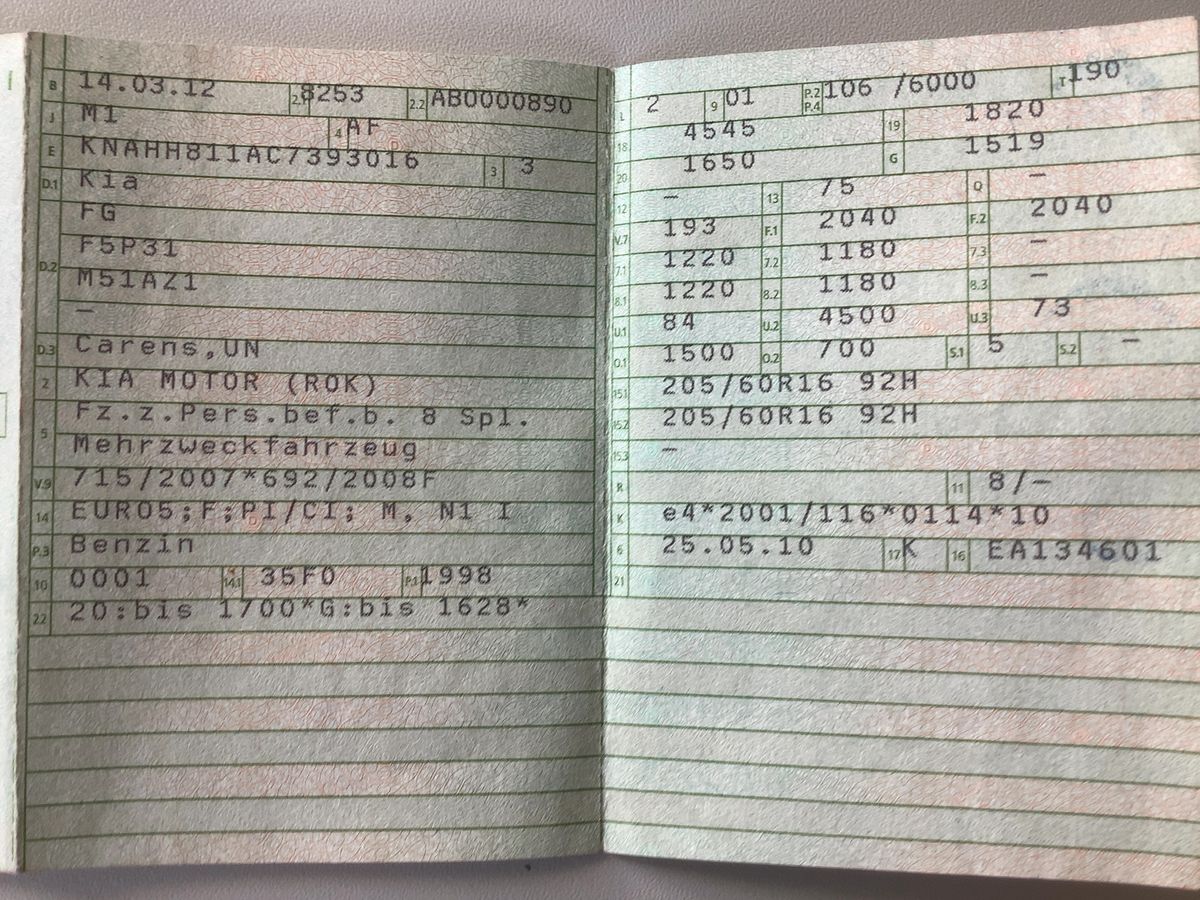 B 14.03.12 2.1 8253 2.2 AB0000890
J M1 4 AF
E KNAHH811AC7393016 3 3
D.1 Kia
FG
D.2 F5P31
M51AZ1
—
D.3 Carens,UN
2 KIA MOTOR (ROK)
5 Fz.z.Pers.bef.b. 8 Spl.
Mehrzweckfahrzeug
V.9 715/2007*692/2008F
14 EURO5;F;PI/CI; M, N1 I
P.3 Benzin
10 0001 14.1 35F0 P.1 1998
22 20:bis 1700*G:bis 1628*
L 2 9 01 P.2 P.4 106 /6000 T 190
18 4545 19 1820
20 1650 G 1519
12 — 13 75 Q —
V.7 193 F.1 2040 F.2 2040
7.1 1220 7.2 1180 7.3 —
8.1 1220 8.2 1180 8.3 —
U.1 84 U.2 4500 U.3 73
O.1 1500 O.2 700 S.1 5 S.2 —
15.1 205/60R16 92H
15.2 205/60R16 92H
15.3 —
R 11 8/—
K e4*2001/116*0114*10
6 25.05.10 17 K 16 EA134601
21